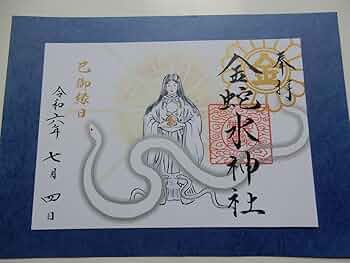 奉拝
金
金蛇水神社
巳御縁日
令和六年
七月四日